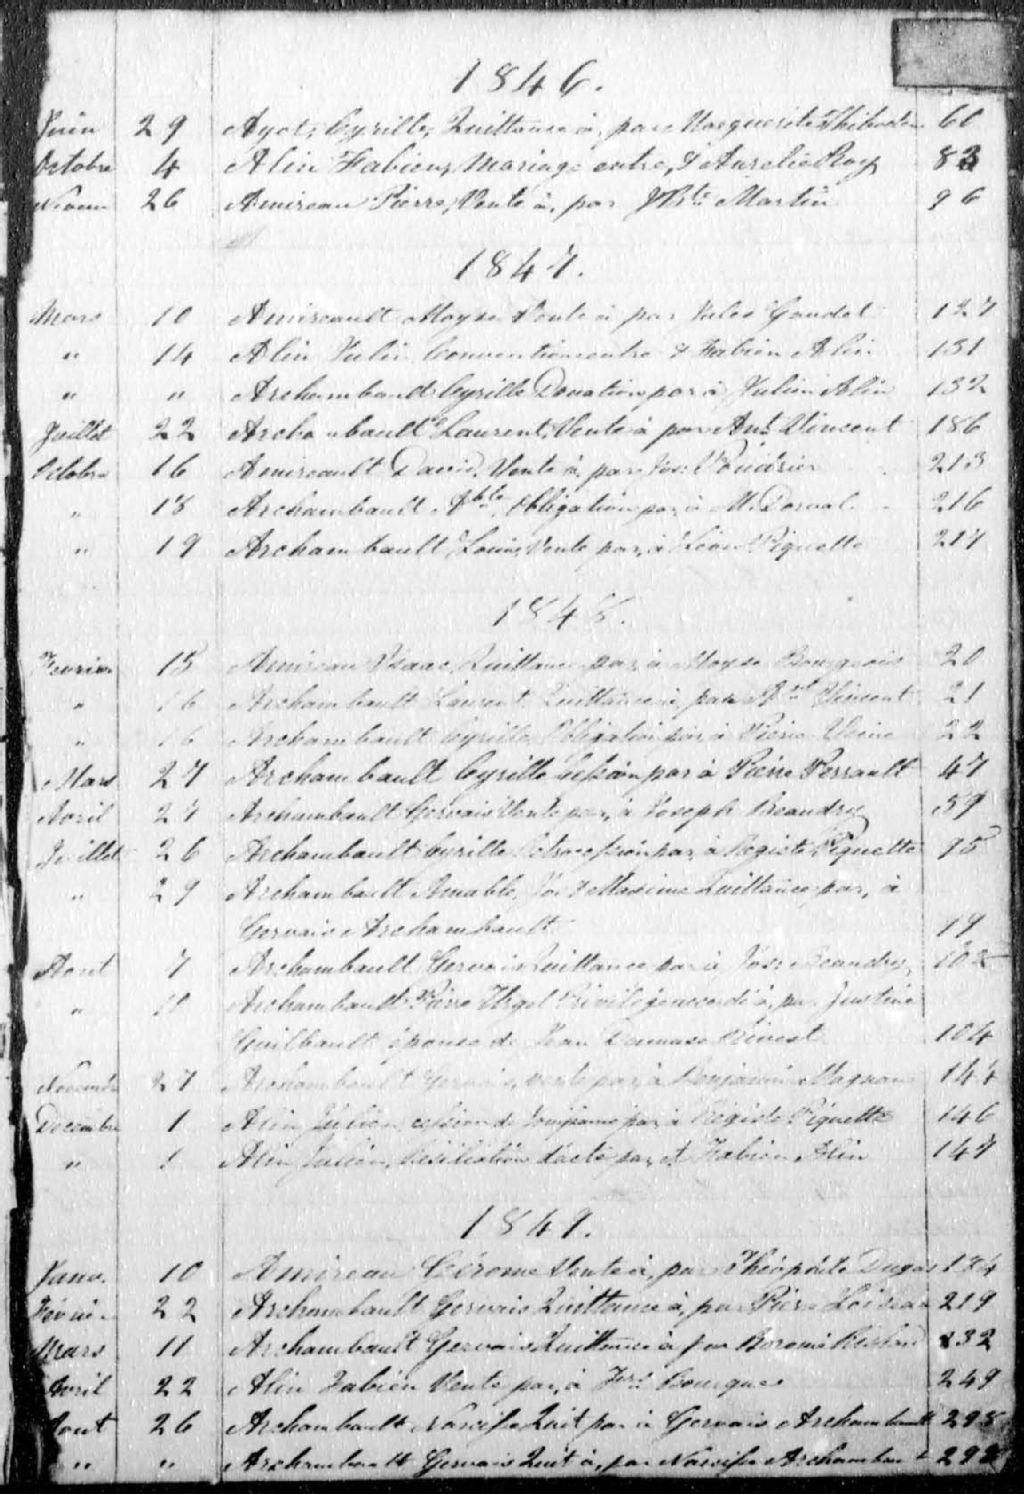 1846.
Juin 29 Ayot, Cyrille, Quittance à, par Marguerite Thibodeau 60
Octobre 4 Alin Fabien, Mariage entre, & Aurelie Roy 83
26 Amireau Pierre, Vente à, par JBte Martin 96
1847.
Mars 10 Amireault Moyse Vente à par Jules Gaudet 127
" 14 Alin Julien Convention entre & Fabien Alin 131
" " Archambault Cyrille Donation par à Julien Alin 132
Juillet 22 Archambault Laurent, Vente à par Ant. Vincent 186
Octobre 16 Amireault David, Vente à, par Jos. 213
" 18 Archambault Obligation par, à M. Dorval 216
" 19 Archambault Louis, Vente par, à Léon Piquette 217
1848.
Fevrier 15 Amireau Isaac, Quittance par, à Moyse Bourgeois 20
" 16 Archambault Laurent Quittance à, par Vincent 21
" 16 Archambault Cyrille Obligation par, à Pierre 22
Mars 27 Archambault Cyrille Cession par à Pierre Perrault 47
Avril 27 Archambault Gervais Vente par, à Joseph Beaudry 59
Juillet 26 Archambault Cyrille Retrocession par, à Régiste Piquette 75
" 29 Archambault Amable, Jos & Maxime Quittance par, à
Gervais Archambault 79
Aout 7 Archambault Gervais Quittance par à Jos. Beaudry 102
" Archambault Pierre Urgel par Justine
Guilbault épouse de Jean Rivest 104
Novembre 27 Archambault Gervais, vente par, à Benjamin Magnan 144
Decembre 1 Alin Julien, cession de par, à Régiste Piquette 146
" 1 Alin Julien, Résiliation d'acte par, & Fabien Alin 147
1849.
Janv. 10 Amireau Gérome Vente à, par Théophile Dugas 174
Février 22 Archambault Gervais Quittance à, par Pierre Loiseau 219
Mars 11 Archambault Gervais Quittance à par 232
Avril 22 Alin Fabien Vente par, à Bourque 249
Aout 26 Archambault Narcisse Quit par à Gervais Archambault 298
" " Archambault Gervais Quit à, par Narcisse Archambault 298